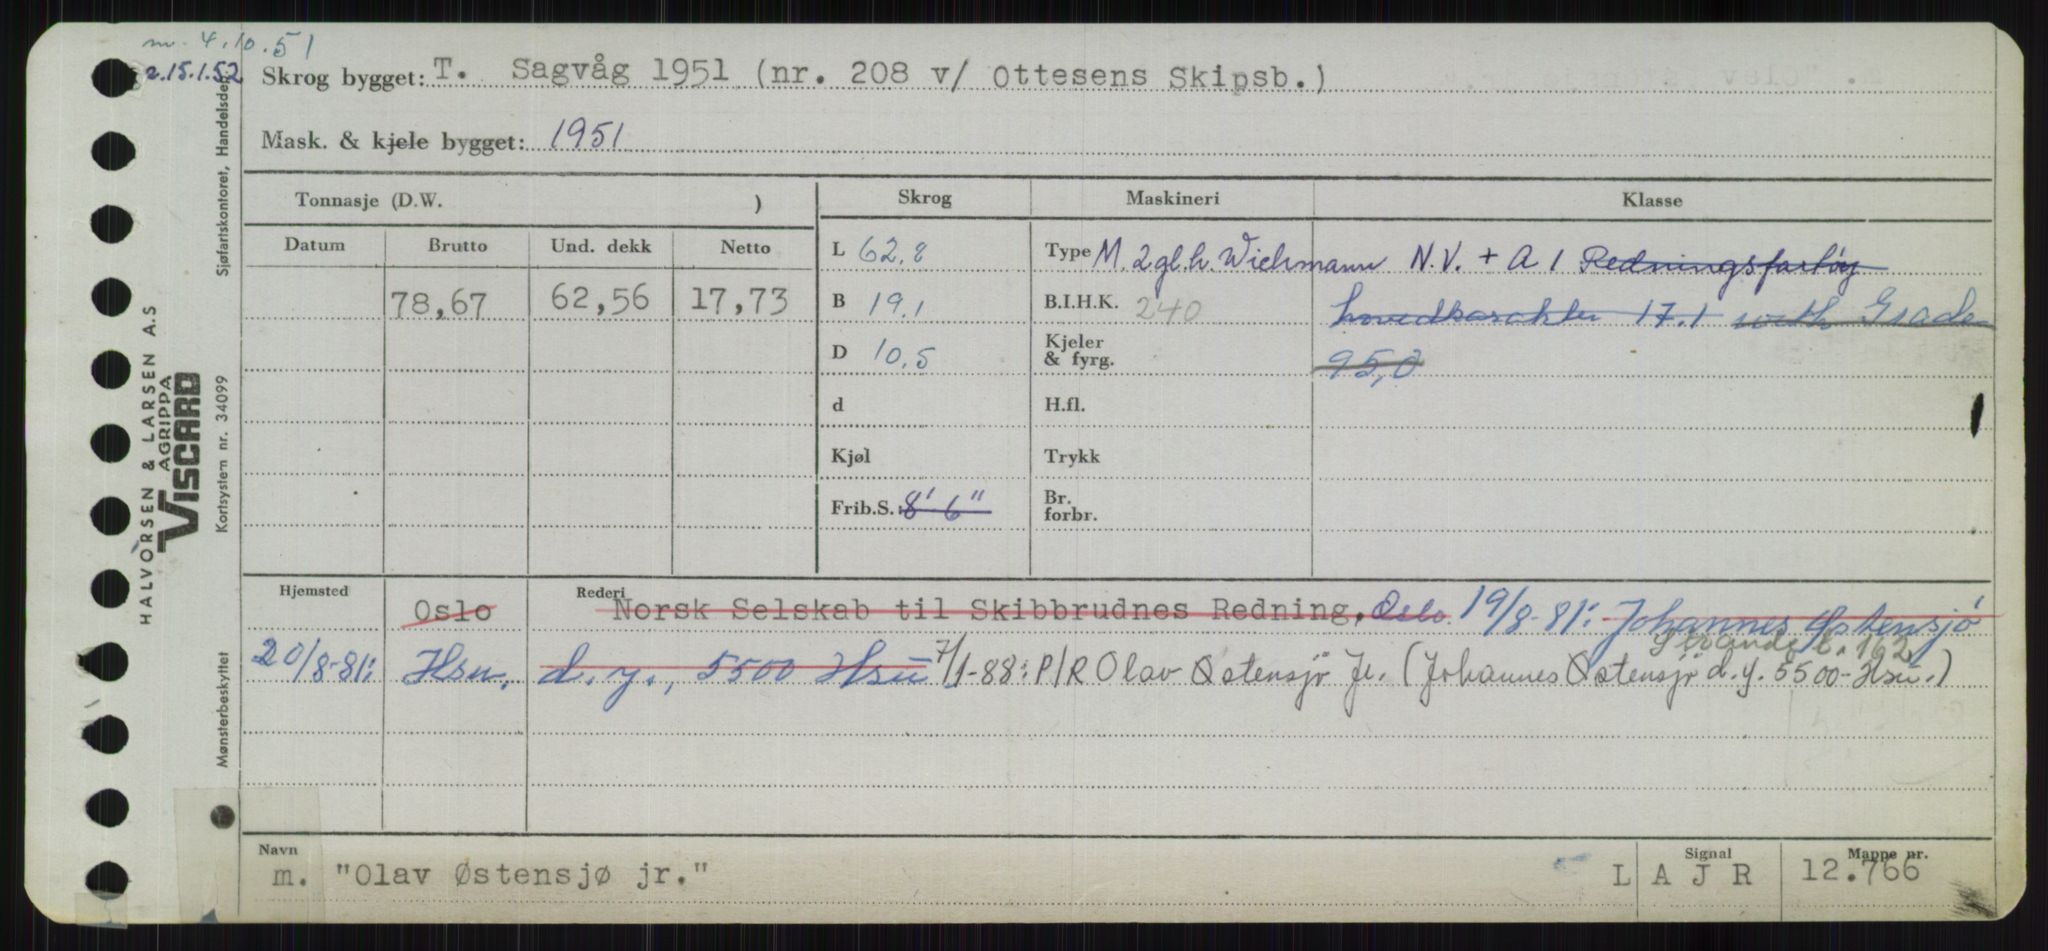 4.10.51
2.15.1.52
Skrog bygget: T. Sagvåg 1951 (nr. 208 v/ Ottesens Skipsb.)
Mask. & kjele bygget: 1951
Tonnasje (D.W. )
Skrog
Maskineri
Klasse
Datum
Brutto
Und. dekk
Netto
78,67
62,56
17,73
L 62.8
B 19.1
D 10.5
d
Kjøl
Frib.S. 8' 6"
Type M. 2 gl.h. Wichmann
B.I.H.K. 240
Kjeler
& fyrg.
H.fl.
Trykk
Br.
forbr.
N.V. + A 1 Redningsfartøy
hovedkarakter 17.1 with Grade
95,0
Hjemsted
Oslo
Rederi
Norsk Selskab til Skibbrudnes Redning, Oslo. 19/8-81: Johannes Østensjö
Strandgt. 162
20/8-81: Hsu. d.y., 5500 Hsu 7/1-88: P/R Olav Østensjø Jr. (Johannes Østensjø d.y. 5500-Hsu.)
Navn
m. "Olav Østensjø jr."
Signal
L A J R
Mappe nr.
12.766
HALVORSEN & LARSEN A.S
AGRIPPA
VISCARD
Sjøfartskontoret, Handelsdep.
Kortsystem nr. 34099
Mønsterbeskyttet